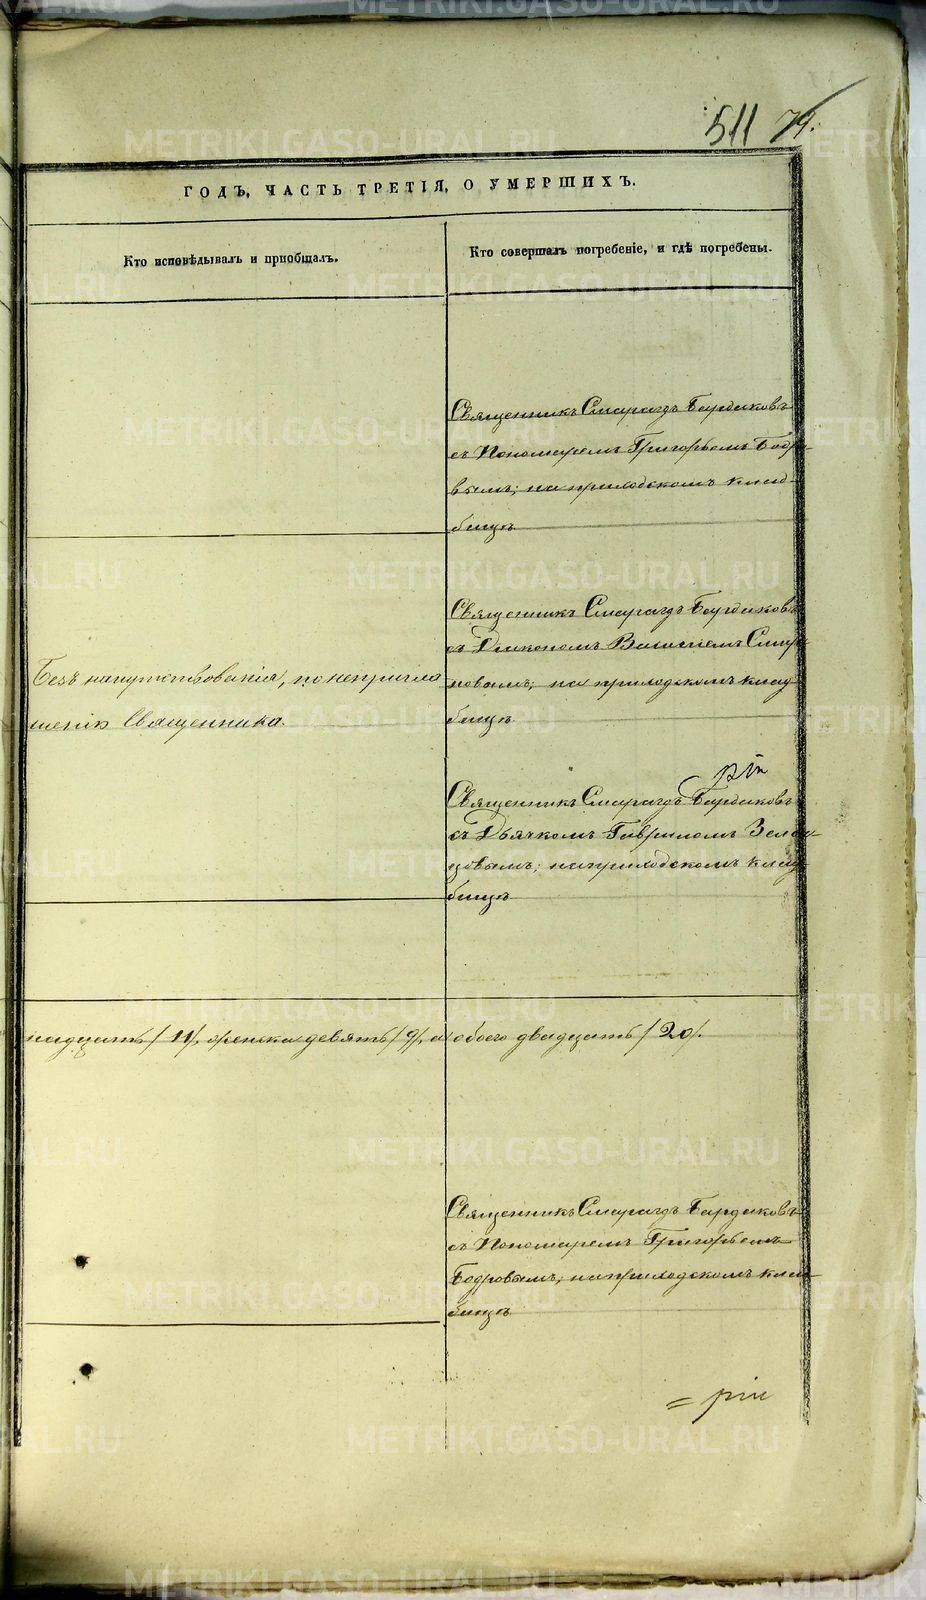 511 79.
ГОДЪ, ЧАСТЬ ТРЕТІЯ, О УМЕРШИХЪ.
Кто исповѣдывалъ и пріобщалъ.
Кто совершалъ погребеніе, и гдѣ погребены.
Священникъ Смарагдъ Бардаковъ
съ Пономаремъ Григорьемъ Бодро-
вымъ; на приходскомъ клад-
бищѣ
Безъ напутствованія, по непригла
шенію Священника.
Священникъ Смарагдъ Бардаковъ
съ Діакономъ Смир
новымъ; на приходскомъ клад
бищѣ
Священникъ Смарагдъ Бардаковъ
съ Дьячкомъ Гавріиломъ
на приходскомъ клад
бищѣ
надцать /11/, женска девять /9/, а обоего двадцать /20/.
Священникъ Смарагдъ Бардаковъ
съ Пономаремъ Григорьемъ
Бодровымъ; на приходскомъ клад-
бищѣ
METRIKI.GASO-URAL.RU